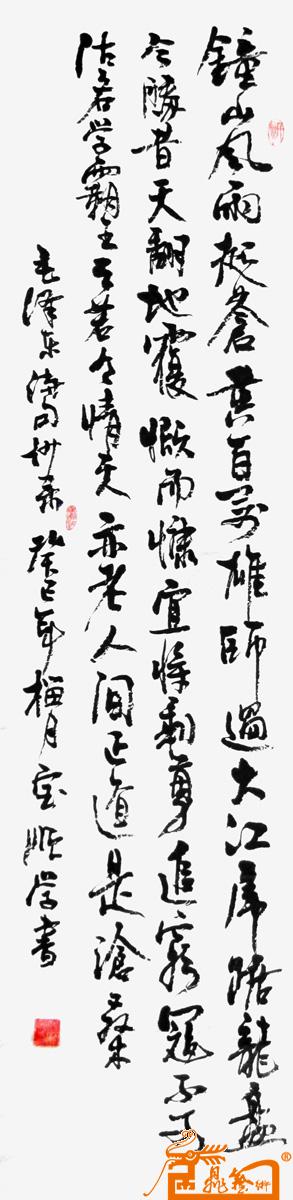 鐘山風雨起蒼黄百萬雄師過大江虎踞龍盤
今勝昔天翻地覆慨而慷宜将剩勇追窮寇不可
沽名学霸王天若有情天亦老人间正道是滄桑
毛澤東詩詞 癸巳年梅月宝順学書